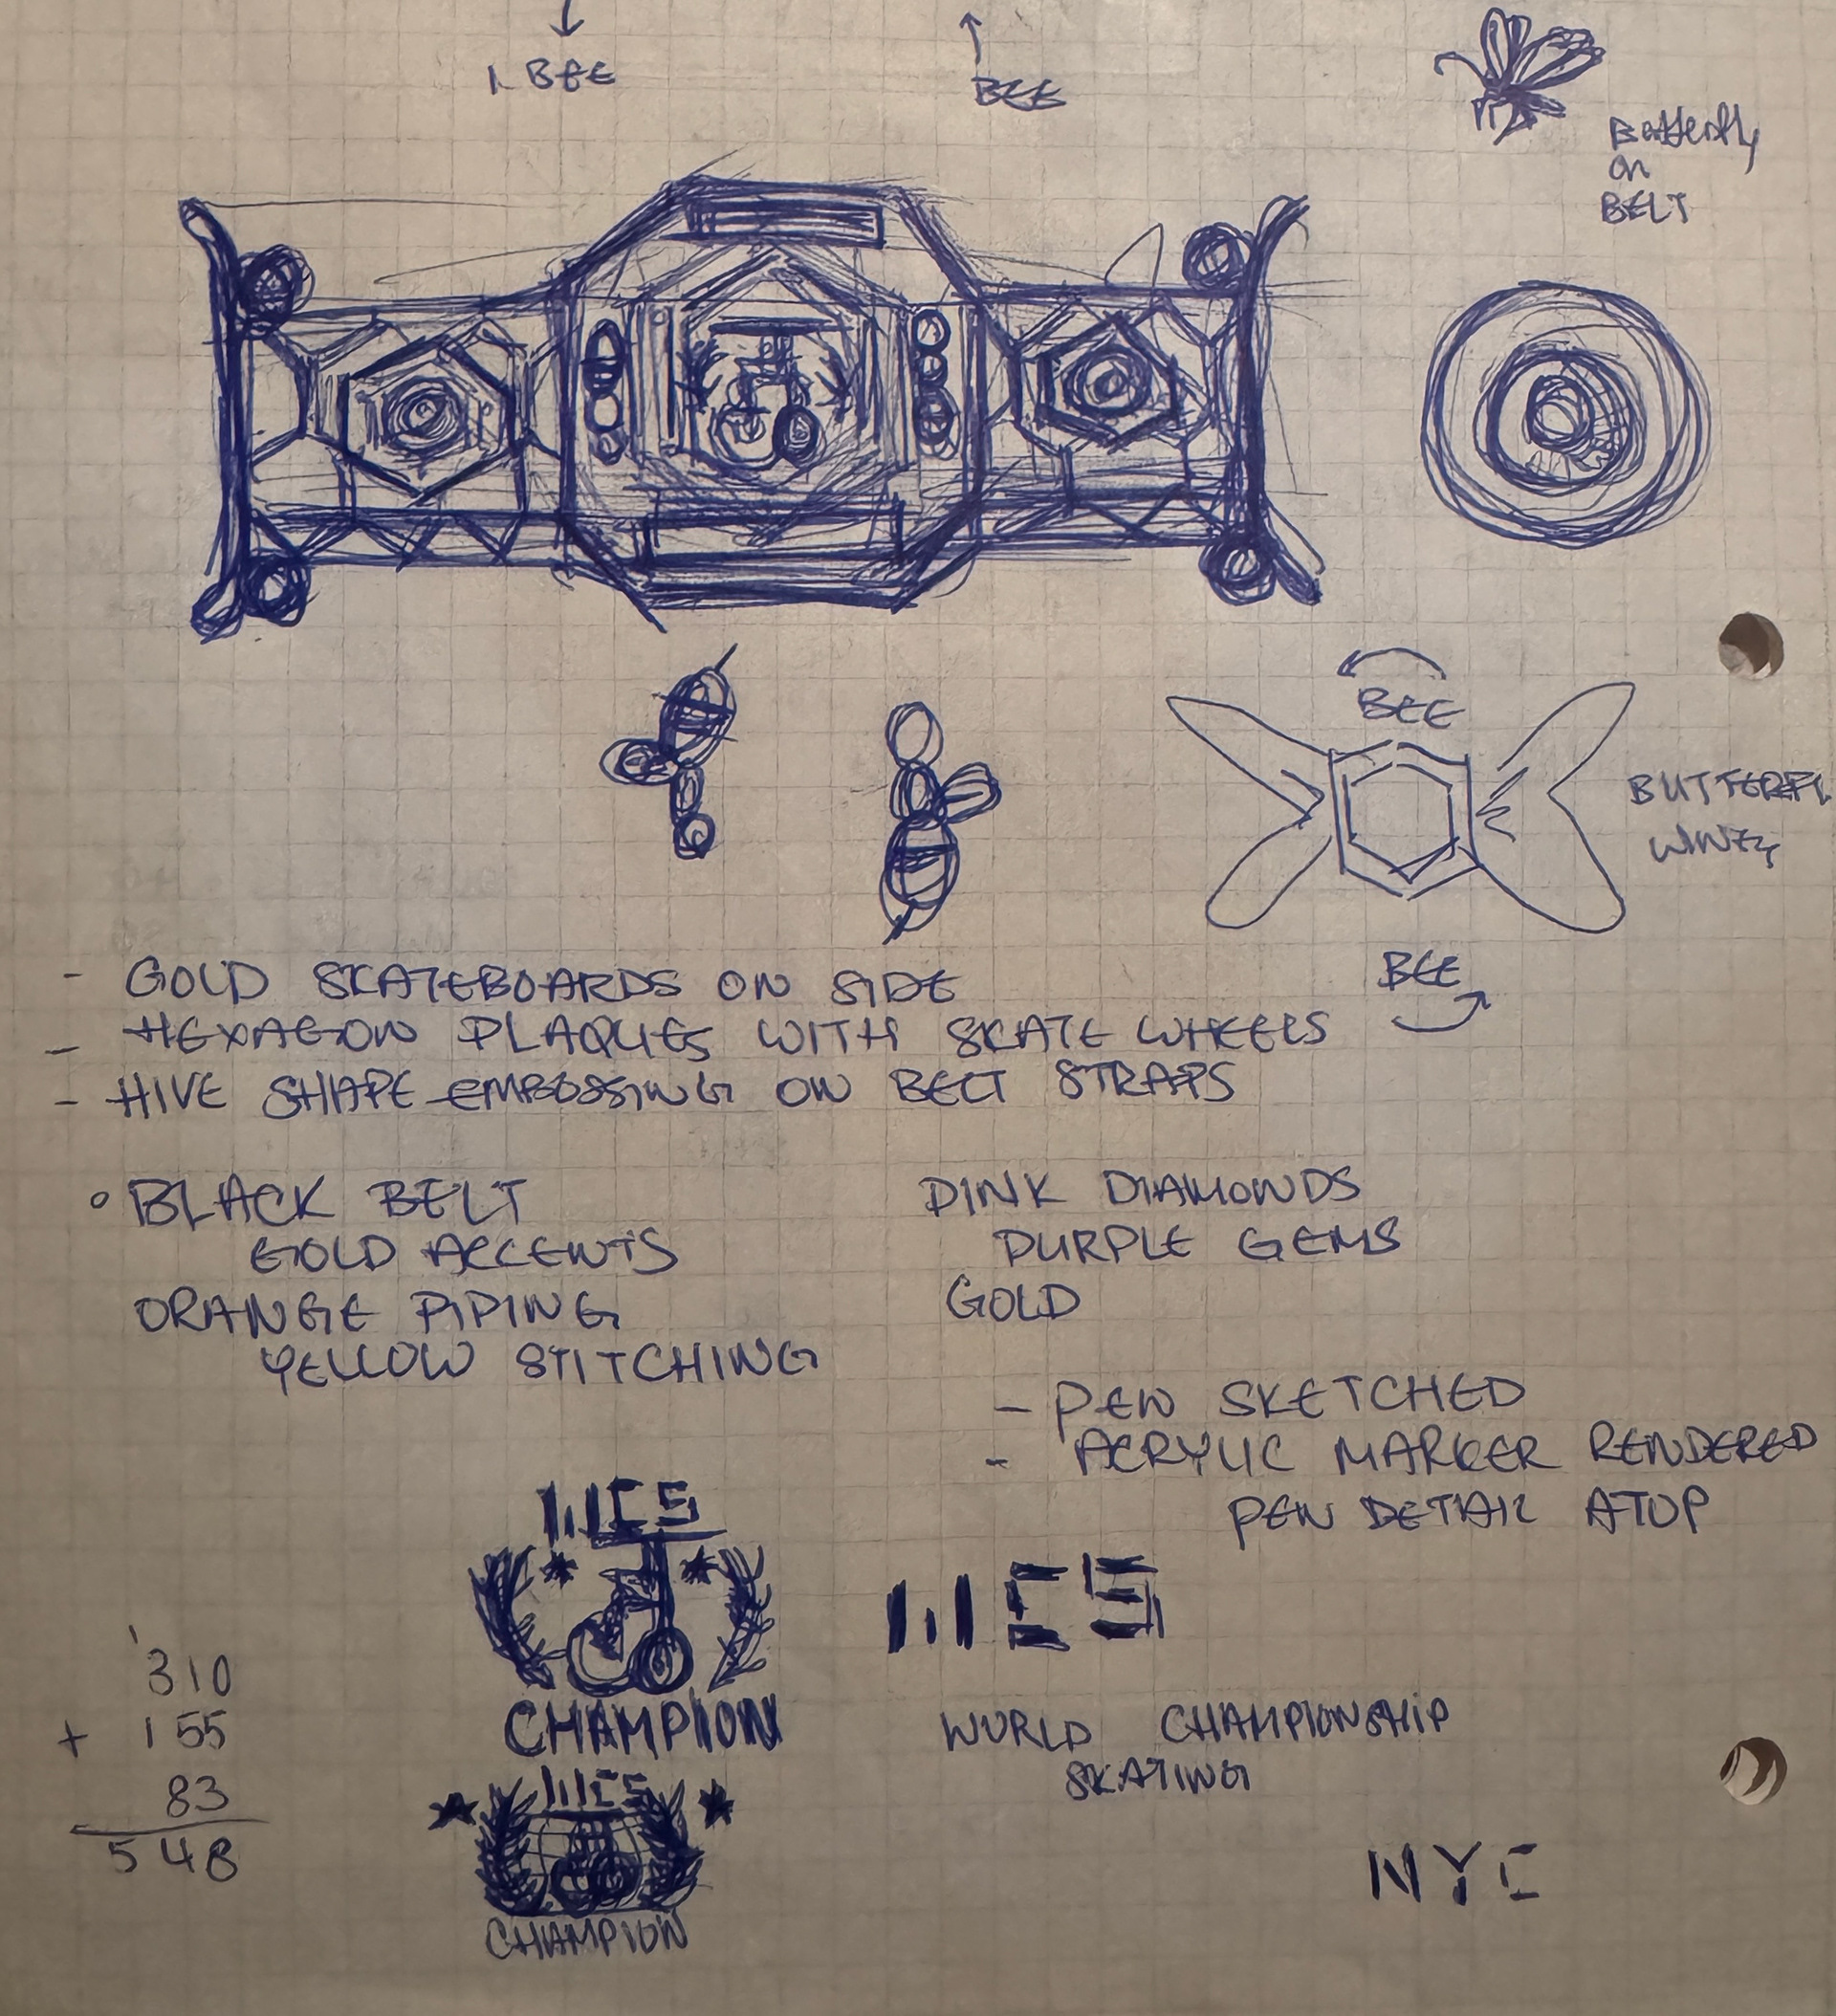 1 BEE
BEE
Butterfly
on
BELT
BEE
BUTTERFL
WINGS
BEE
- GOLD SKATEBOARDS ON SIDE
- HEXAGON PLAQUES WITH SKATE WHEELS
- HIVE SHAPE EMBOSSING ON BELT STRAPS
° BLACK BELT
GOLD ACCENTS
ORANGE PIPING
YELLOW STITCHING
PINK DIAMONDS
PURPLE GEMS
GOLD
- PEN SKETCHED
- ACRYLIC MARKER RENDERED
PEN DETAIL ATOP
WCS
CHAMPION
WCS
CHAMPION
WCS
WORLD CHAMPIONSHIP
SKATING
NYC
1
310
+ 155
83
548